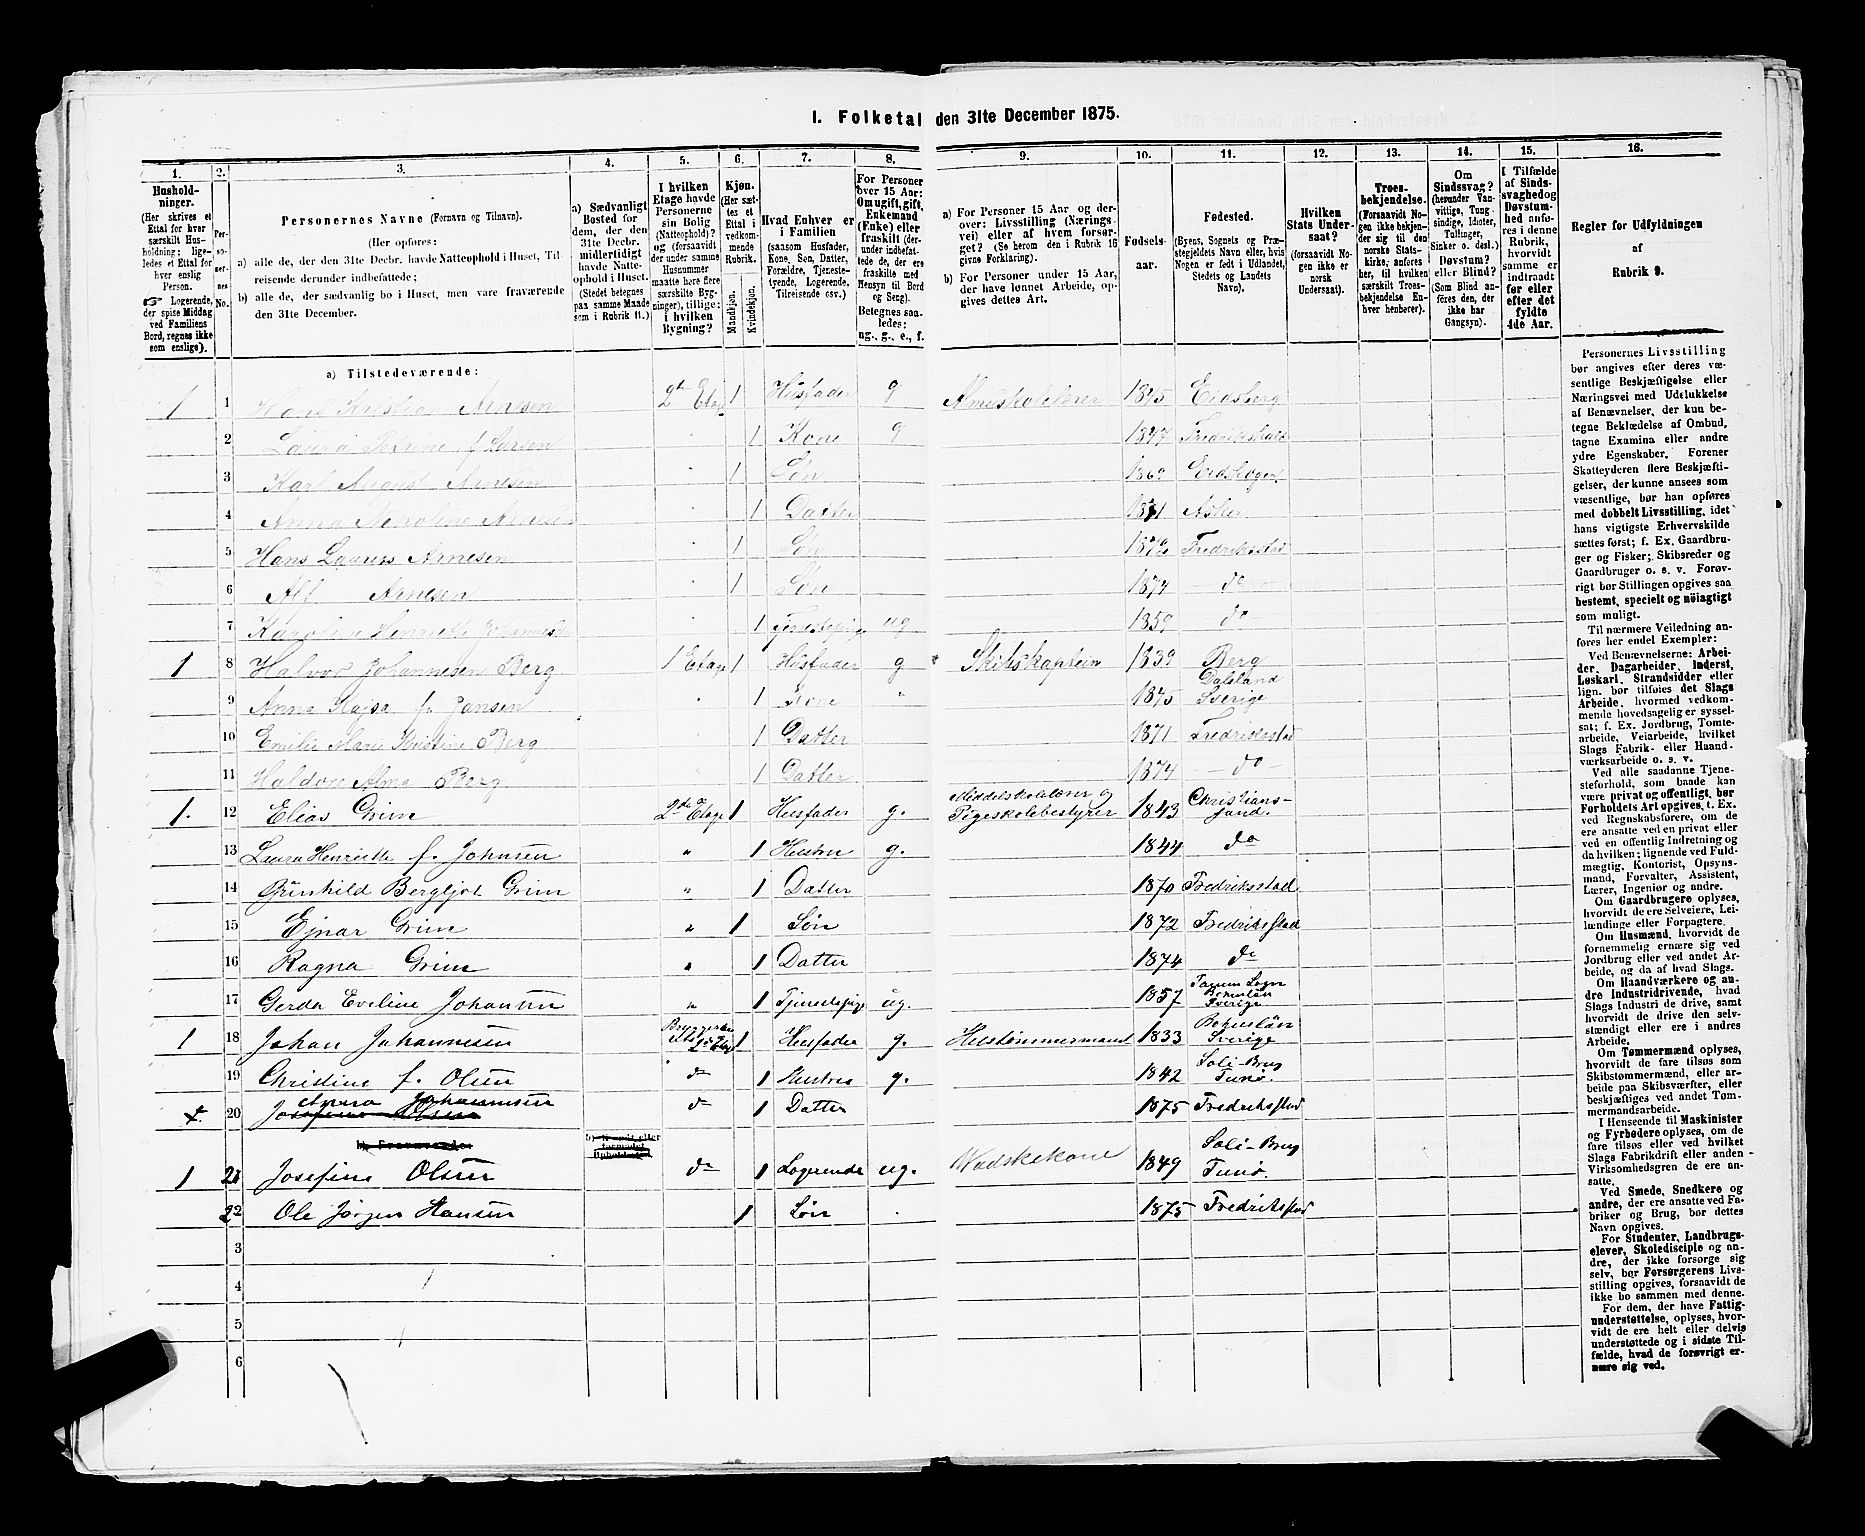 I. Folketal den 31te December 1875.
1. 2. 3. 4. 5. 6. 7. 8. 9. 10. 11. 12. 13. 14. 15. 16.
Hushold-
ninger.
(Her skrives et
Ettal for hver
særskilt Hus-
holdning; lige-
ledes et Ettal for
hver enslig
Person.
☞ Logerende,
der spise Middag
ved Familiens
Bord, regnes ikke
som enslige).
Per-
so-
ner-
nes
No.
Personernes Navne (Fornavn og Tilnavn).
(Her opføres:
a) alle de, der den 31te Decbr. havde Natteophold i Huset, Til
reisende derunder indbefattede;
b) alle de, der sædvanlig bo i Huset, men vare fraværende
den 31te December.
a) Sædvanligt
Bosted for
dem, der den
31te Decbr.
midlertidigt
havde Natte-
ophold i Huset.
(Stedet betegnes
paa samme Maade
som i Rubrik 11.)
I hvilken
Etage havde
Personerne
sin Bolig
(Natteophold)?
og (forsaavidt
der under samme
Husnummer
maatte høre flere
særskilte Byg-
ninger), tillige:
i hvilken
Bygning?
Kjøn.
(Her sæt-
tes et
Ettal i
vedkom-
mende
Rubrik.
Mandkjøn.
Kvindekjøn.
Hvad Enhver er
i Familien
(saasom Husfader,
Kone, Søn, Datter,
Forældre, Tjeneste-
tyende, Logerende,
Tilreisende osv.)
For Personer
over 15 Aar:
Om ugift, gift,
Enkemand
(Enke) eller
fraskilt (der-
under indbefat-
tede de, der ere
fraskilte med
Hensyn til Bord
og Seng).
Betegnes saa-
ledes:
ug., g., e., f.
a) For Personer 15 Aar og der-
over: Livsstilling (Nærings-
vei) eller af hvem forsør-
get? (Se herom den i Rubrik 16
givne Forklaring).
b) For Personer under 15 Aar,
der have lønnet Arbeide, op-
gives dettes Art.
Fødsels-
aar.
Fødested.
(Byens, Sognets og Præ-
stegjeldets Navn eller, hvis
Nogen er født i Udlandet,
Stedets og Landets
Navn).
Hvilken
Stats Under-
saat?
(forsaavidt No-
gen ikke er
norsk
Undersaat).
Troes-
bekjendelse.
(Forsaavidt No-
gen ikke bekjen-
der sig til den
norske Stats-
kirke, anføres
her, til hvilken
særskilt Troes-
bekjendelse En-
hver henhører).
Om
Sindssvag?
(herunder Van-
vittige, Tung-
sindige, Idioter,
Tullinger,
Sinker o. desl.)
Døvstum?
eller Blind?
(Som Blind an-
føres den, der
ikke har
Gangsyn).
I Tilfælde
af Sinds-
svaghed og
Døvstum-
hed anfø-
res i denne
Rubrik,
hvorvidt
samme er
indtraadt
før eller
efter det
fyldte
4de Aar.
Regler for Udfyldningen
af
Rubrik 9.
a) Tilstedeværende:
1 1 Hans Kristian Arnesen 2den Etage 1 Husfader g Almuskolelærer 1845 Eidsberg
2 Laura f. Larsen 1 Kone g 1847 Fredrikshald
3 Karl August Arnesen 1 Søn 1869
4 Anna Arnesen 1 Datter 1871 Asker
5 Hans Laurits Arnesen 1 Søn 1872 Fredriksstad
6 Alf Arnesen 1 Søn 1874 do
7 Karoline Henriette 1 Tjenestepige ug 1859 do
1 8 Halvor Johannesen Berg 1 Etage 1 Husfader g Skibskaptein 1839 Berg
9 Anna Kajsa f. Jansen " 1 Kone " 1845 Dalsland Sverige
10 Emilie Marie Kristine Berg " 1 Datter 1871 Fredriksstad
11 Alma Berg " 1 Datter 1874 do
1. 12 Elias Grim 2den Etage 1 Husfader g. Middelskolelærer og Pigeskolebestyrer 1843 Christiansand.
13 Laura Henriette f. Johnsen " 1 Hustru g. 1844 do
14 Gunhild Bergljot Grim " 1 Datter 1870 Fredriksstad
15 Ejnar Grim " 1 Søn 1872 Fredriksstad
16 Ragna Grim " 1 Datter 1874 do
17 Gerda Eveline Johansen " 1 Tjenestepige ug. 1857 Tanum Sogn Bohuslän Sverige
1 18 Johan Johannesen 2 Etage 1 Husfader g. Hustømmermand 1833 Bohuslän Sverige
19 Christine f. Olsen do 1 Hustru g. 1842 Soli-Brug Tunø.
20 Anna Johannesen do 1 Datter 1875 Fredriksstad
b) Fraværende:
b) Kjendt eller
formodet
Opholdssted.
1 21 Josefine Olsen do 1 Logerende ug. Vadskekone 1849 Soli-Brug Tunø.
22 Ole Jørgen Hansen 1 Søn 1875 Fredriksstad
3
4
5
6
Personernes Livsstilling
bør angives efter deres væ-
sentlige Beskjæftigelse eller
Næringsvei med Udelukkelse
af Benævnelser, der kun be-
tegne Beklædelse af Ombud,
tagne Examina eller andre
ydre Egenskaber. Forener
Skatteyderen flere Beskjæfti-
gelser, der kunne ansees som
væsentlige, bør han opføres
med dobbelt Livsstilling, idet
hans vigtigste Erhvervskilde
sættes først; f. Ex. Gaardbru-
ger og Fisker; Skibsreder og
Gaardbruger o. s. v. Forøv-
rigt bør Stillingen opgives saa
bestemt, specielt og nöiagtigt
som muligt.
Til nærmere Veiledning an-
føres her endel Exempler:
Ved Benævnelserne: Arbei-
der, Dagarbeider, Inderst,
Løskarl, Strandsidder eller
lign. bør tilføies det Slags
Arbeide, hvormed vedkom-
mende hovedsagelig er syssel-
sat; f. Ex. Jordbrug, Tomte-
arbeide, Veiarbeide, hvilket
Slags Fabrik- eller Haand-
værksarbeide o. s. v.
Ved alle saadanne Tjene-
steforhold, som baade kan
være privat og offentligt, bør
Forholdets Art opgives, t. Ex.
ved Regnskabsførere, om de
ere ansatte ved en privat eller
ved en offentlig Indretning og
da hvilken; lignende ved Fuld-
mægtig, Kontorist, Opsyns-
mand, Forvalter, Assistent,
Lærer, Ingeniør og andre.
Om Gaardbrugere oplyses,
hvorvidt de ere Selveiere, Lei-
lændinge eller Forpagtere.
Om Husmænd, hvorvidt de
fornemmelig ernære sig ved
Jordbrug eller ved andet Ar-
beide, og da af hvad Slags.
Om Haandværkere og an-
dre Industridrivende, hvad
Slags Industri de drive, samt
hvorvidt de drive den selv-
stændigt eller ere i andres
Arbeide.
Om Tømmermænd oplyses,
hvorvidt de fare tilsøs som
Skibstømmermænd, eller ar-
beide paa Skibsværfter, eller
beskjæftiges ved andet Tøm-
mermandsarbeide.
I Henseende til Maskinister
og Fyrbødere oplyses, om de
fare tilsøs eller ved hvilket
Slags Fabrikdrift eller anden
Virksomhedsgren de ere an-
satte.
Ved Smede, Snedkere og
andre, der ere ansatte ved Fa-
briker og Brug, bør dettes
Navn opgives.
For Studenter, Landbrugs-
elever, Skoledisciple og an-
dre, der ikke forsørge sig
selv, bør Forsørgerens Livs-
stilling opgives, forsaavidt de
ikke bo sammen med denne.
For dem, der have Fattig-
understøttelse, oplyses, hvor-
vidt de ere helt eller delvis
understøttede og i sidste Til-
fælde, hvad de forøvrigt er-
nære sig ved.